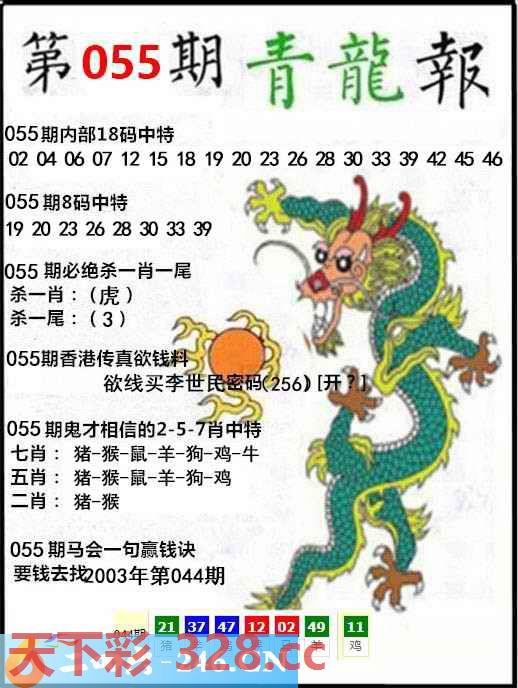 第055期青龍報
055期内部18码中特
02 04 06 07 12 15 18 19 20 23 26 28 30 33 39 42 45 46
055期8码中特
19 20 23 26 28 30 33 39
055期必绝杀一肖一尾
杀一肖：(虎)
杀一尾：(3)
055期香港传真欲钱料
欲线买李世民密码(256)[开?]
055期鬼才相信的2-5-7肖中特
七肖：猪-猴-鼠-羊-狗-鸡-牛
五肖：猪-猴-鼠-羊-狗-鸡
二肖：猪-猴
055期马会一句赢钱诀
要钱去找2003年第044期
044期 21 37 47 12 02 49 11
猪 羊 鸡
天下彩-328.cc